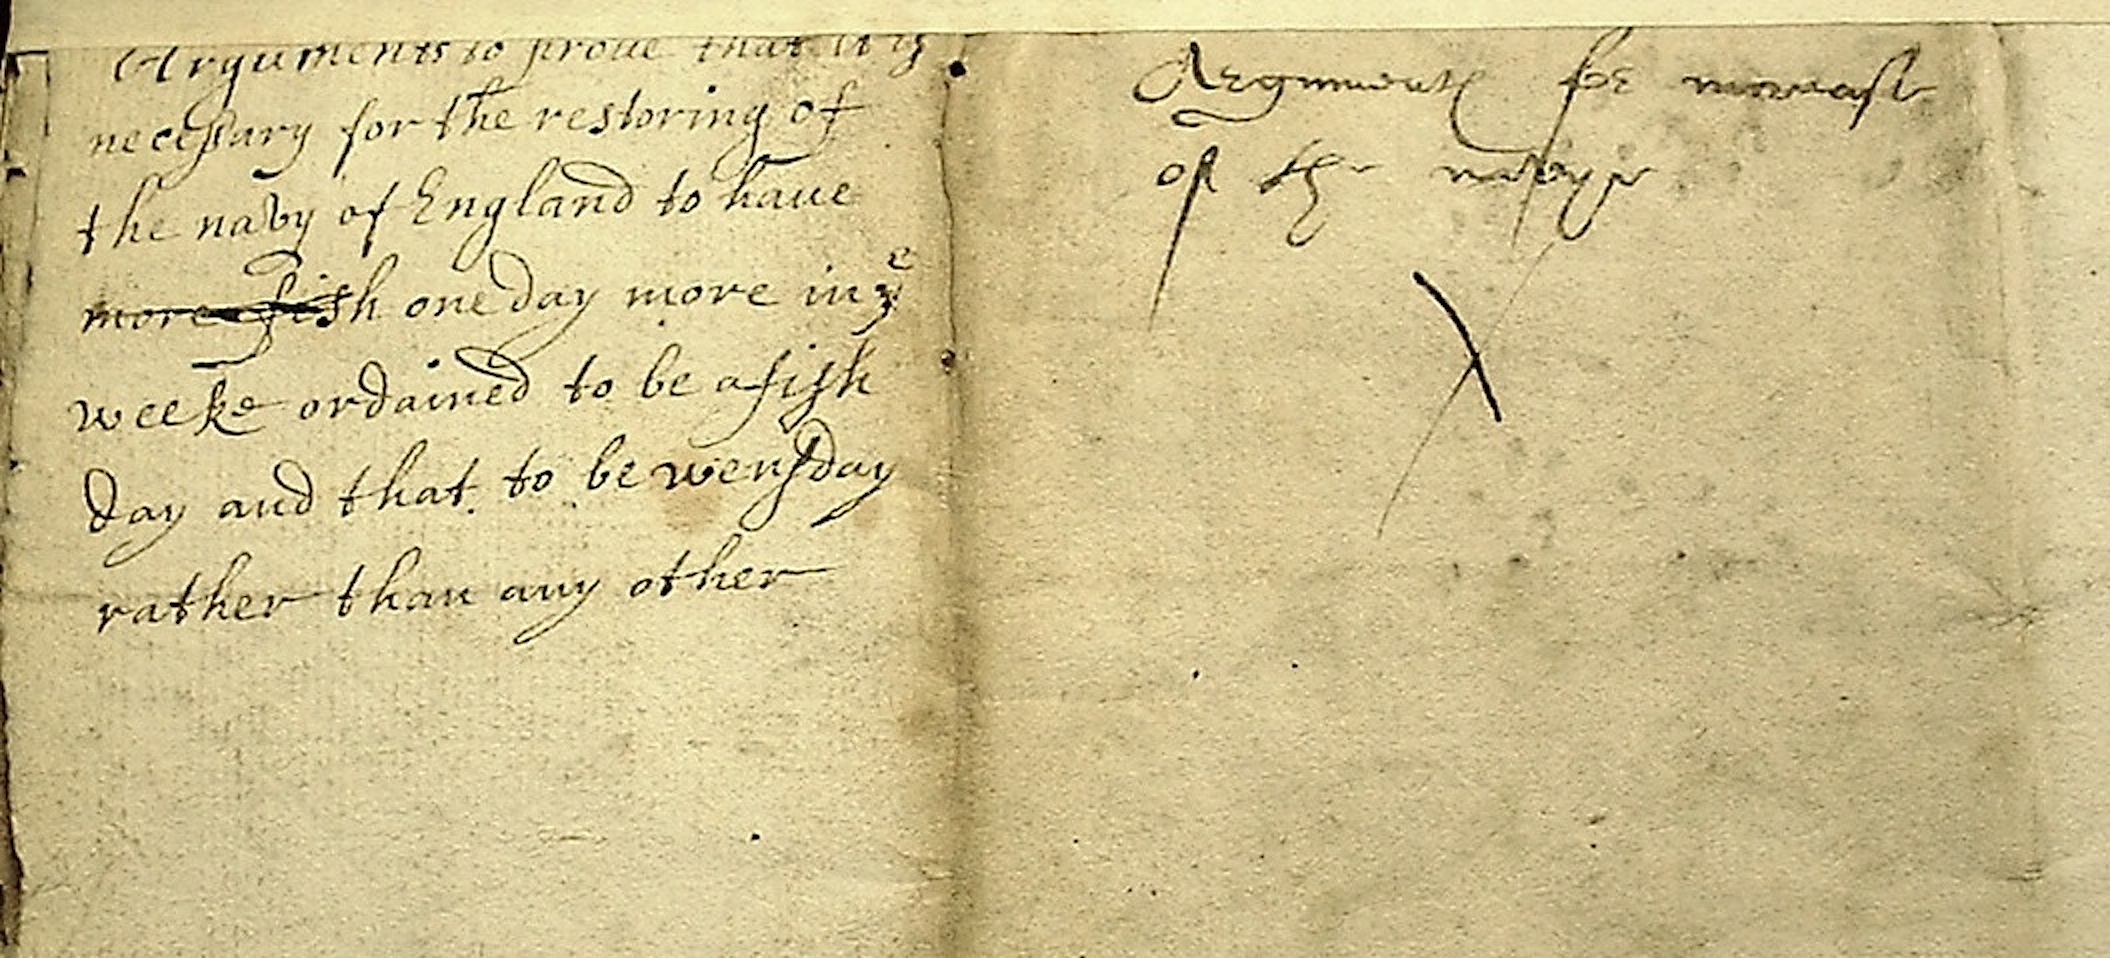 Arguments to proue that it is
necessary for the restoring of
the navy of England to haue
more fish one day more in yͤ
weeke ordained to be a fish
day and that to be wensday
rather than any other
Argumentes for increase
of the navye